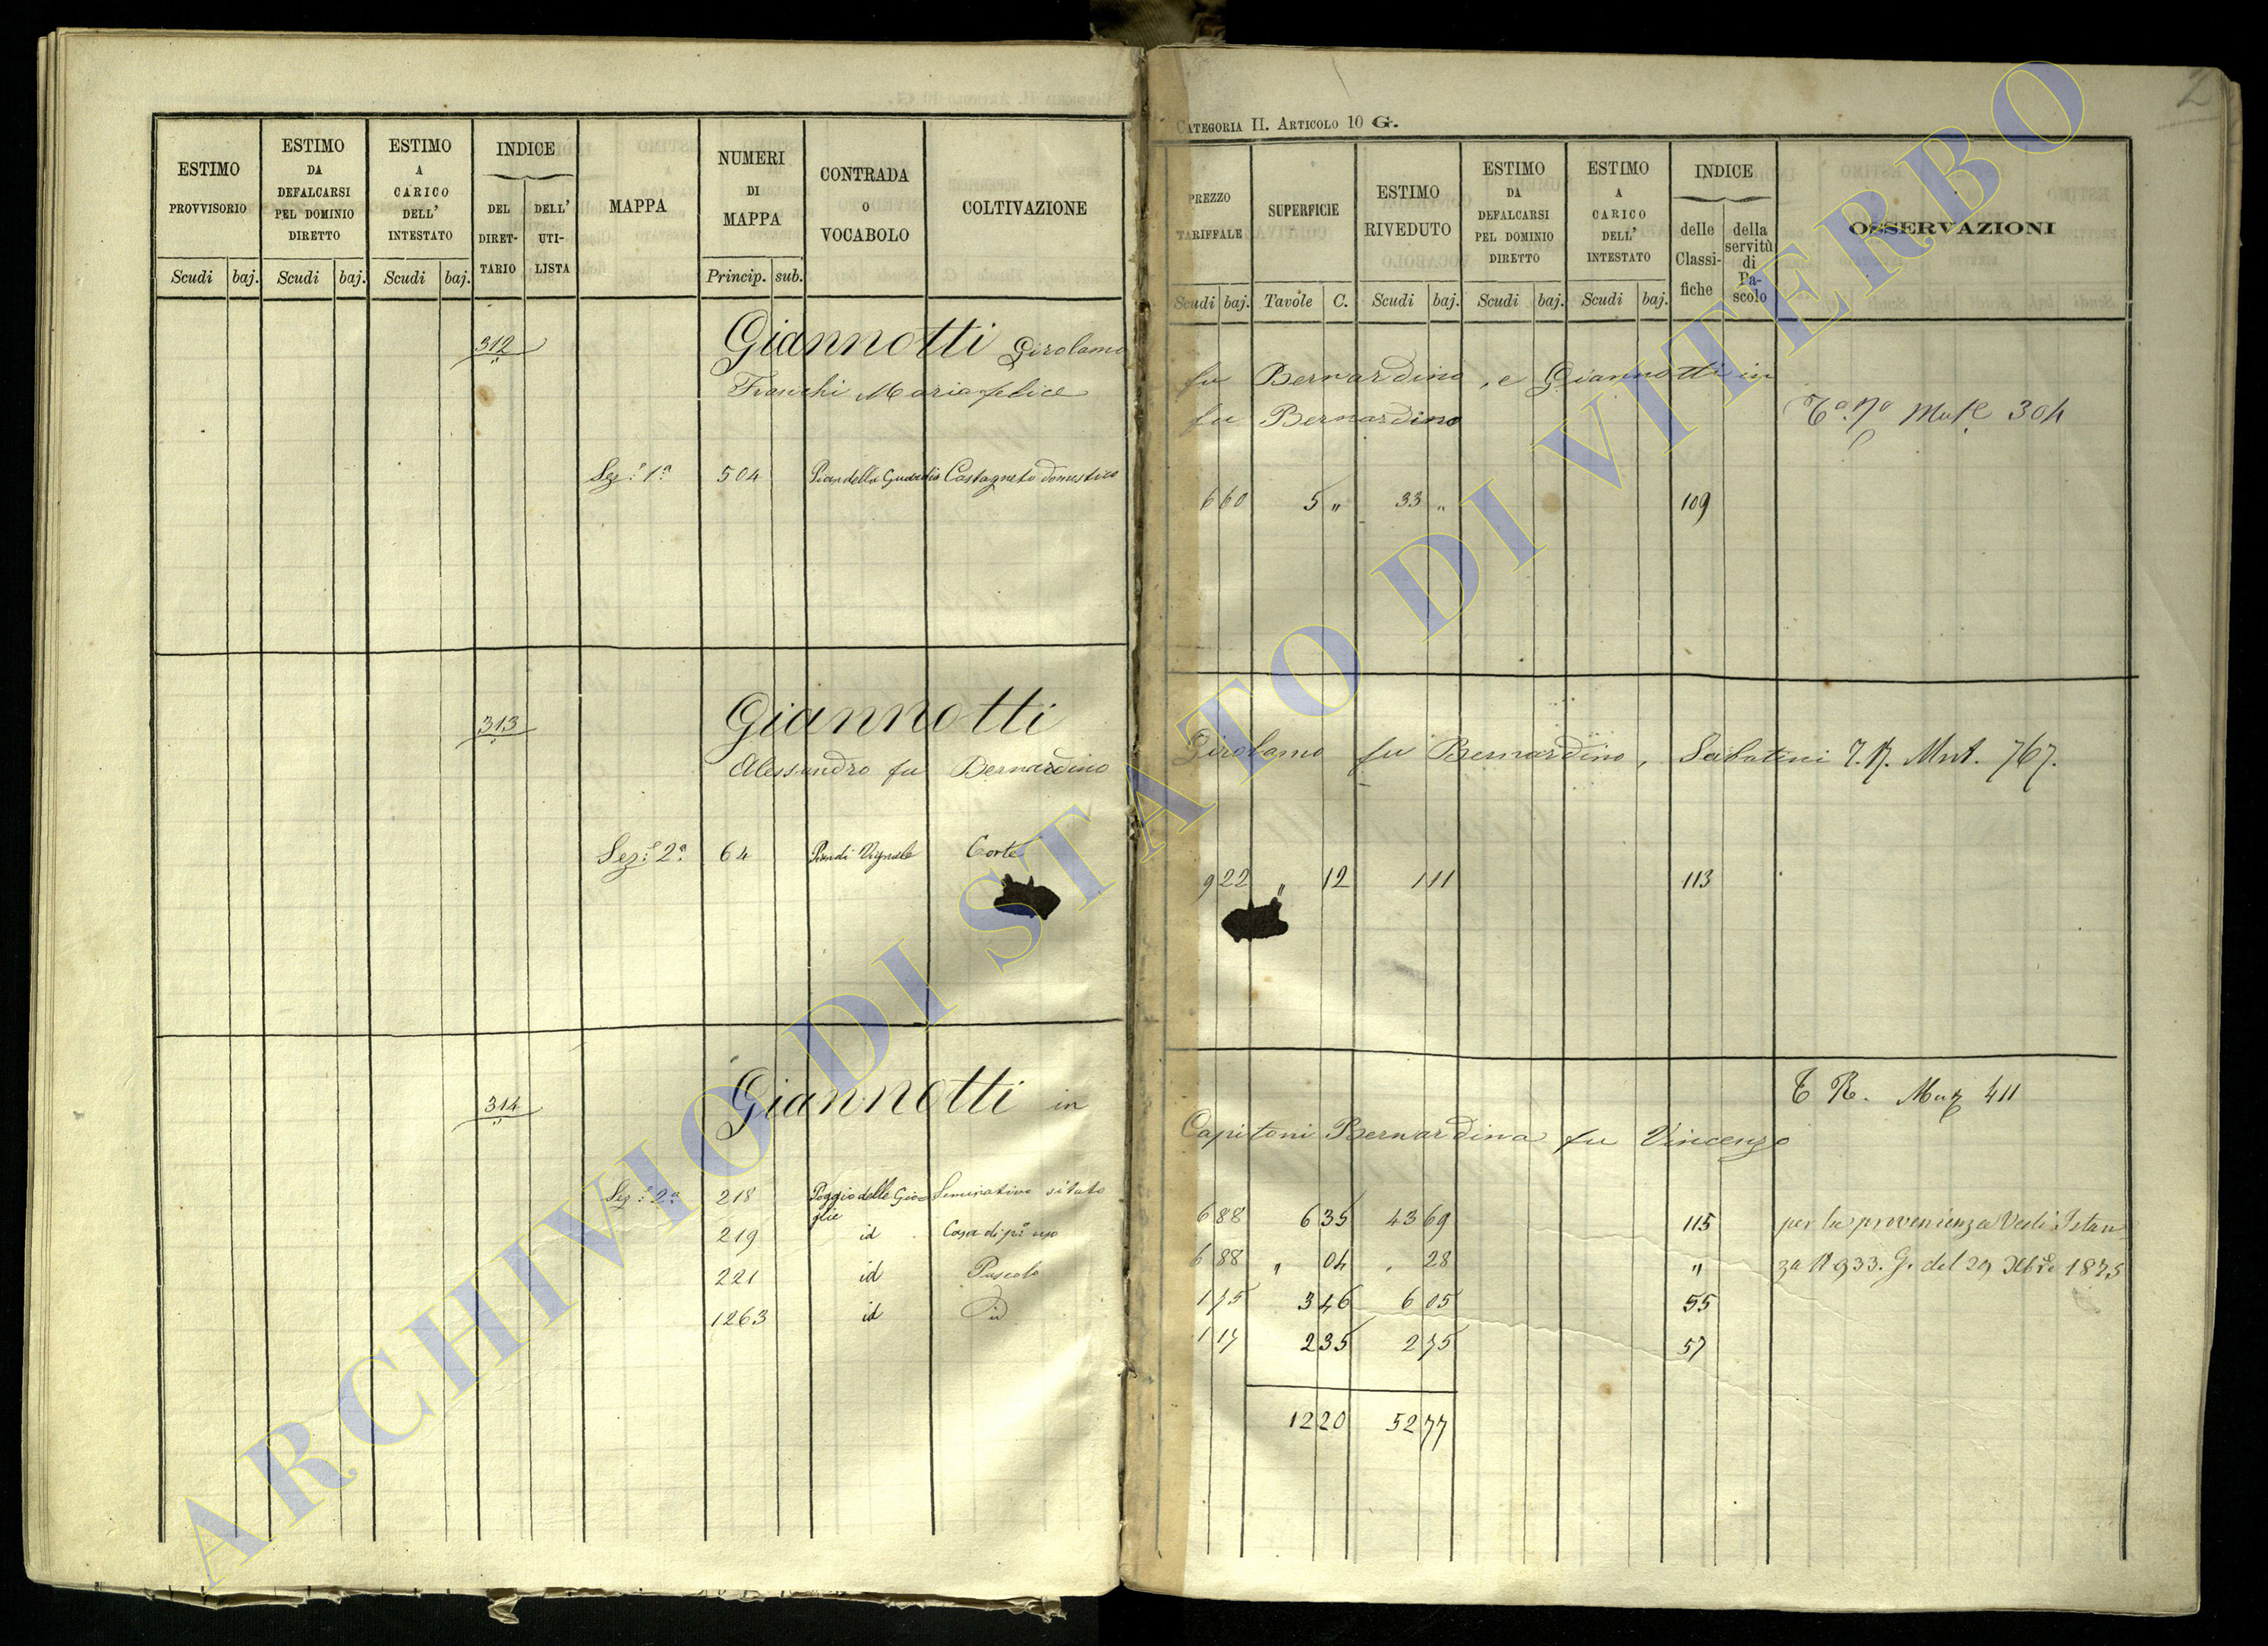 CATEGORIA II. ARTICOLO 10 G.
2
ESTIMO PROVVISORIO
ESTIMO DA DEFALCARSI PEL DOMINIO DIRETTO
ESTIMO A CARICO DELL' INTESTATO
INDICE
DEL DIRETTARIO
DELL' UTILISTA
MAPPA
NUMERI DI MAPPA
CONTRADA O VOCABOLO
COLTIVAZIONE
Scudi baj. Scudi baj. Scudi baj. Princip. sub.
PREZZO TARIFFALE
SUPERFICIE
ESTIMO RIVEDUTO
ESTIMO DA DEFALCARSI PEL DOMINIO DIRETTO
ESTIMO A CARICO DELL' INTESTATO
INDICE
delle Classifiche
della servitù di Pascolo
OSSERVAZIONI
Scudi baj. Tavole C. Scudi baj. Scudi baj. Scudi baj.
312 Giannotti Girolamo fu Bernardino, e Giannotti in
Franchi Maria felice fu Bernardino
304
Sez.e 1a 504 Pian della Guardia Castagneto domestico 6 60 5 " 33 " 109
313 Giannotti
Alessandro fu Bernardino Girolamo fu Bernardino, Sabatini T.N. Mut. 767.
Sez.e 2a 64 Pian di Vignale Corte 9 22 " 12 1 11 113
314 Giannotti in
T R. Mut 411
Capitoni Bernardina fu Vincenzo
Sez.e 2a 218 Poggio delle Gioe Seminativo vitato 6 88 6 35 43 69 115 per la provenienza Vedi Istan
glie
219 id Casa di p.o uso 6 88 " 04 " 28 " za N 933. G. del 29 Xbre 1875
221 id Pascolo 1 75 3 46 6 05 55
1263 id id 1 17 2 35 2 75 57
12 20 52 77
ARCHIVIO DI STATO DI VITERBO